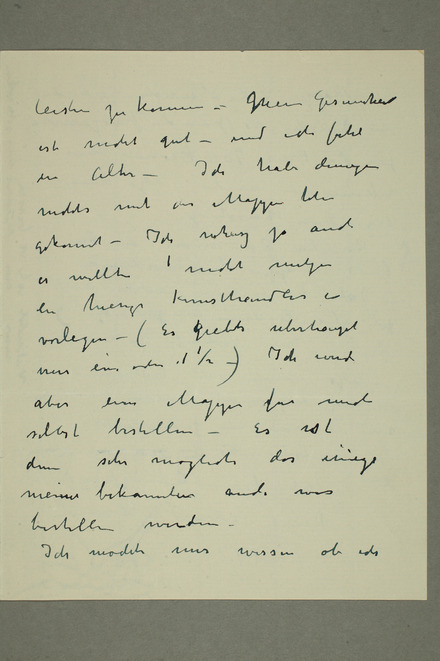 leisten zu können – Meine Gesundheit
ist nicht gut – und ich
im Alter – Ich habe deswegen
nichts mit der Mappe
gekonnt – Ich ja auch
es 1 nicht
Kunsthändler
vorlegen – (Es giebt überhaupt
nur ein oder 1 1/2 –) Ich
aber eine Mappe für mich
selbst bestellen – Es ist
dann sehr möglich das einige
meiner bekannten auch was
bestellen werden –
Ich möchte nur wissen ob ich